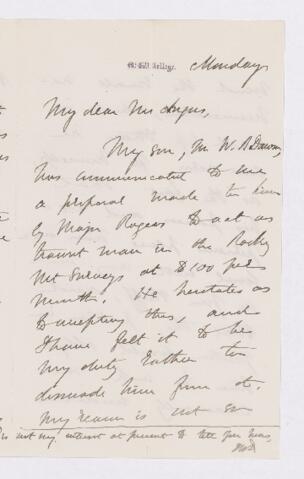 McGill College.
Monday
My dear Mr Angus,
My son, Mr W. B Dawson,
has communicated to me
a proposal made to him
by Major Rogers to act as
transit man in the Rocky
Mt Surveys at $100 per
month. He hesitates as
to accepting this, and
I have felt it to be
my duty rather to
dissuade him from it.
My reason is not so
is not my interest at present to